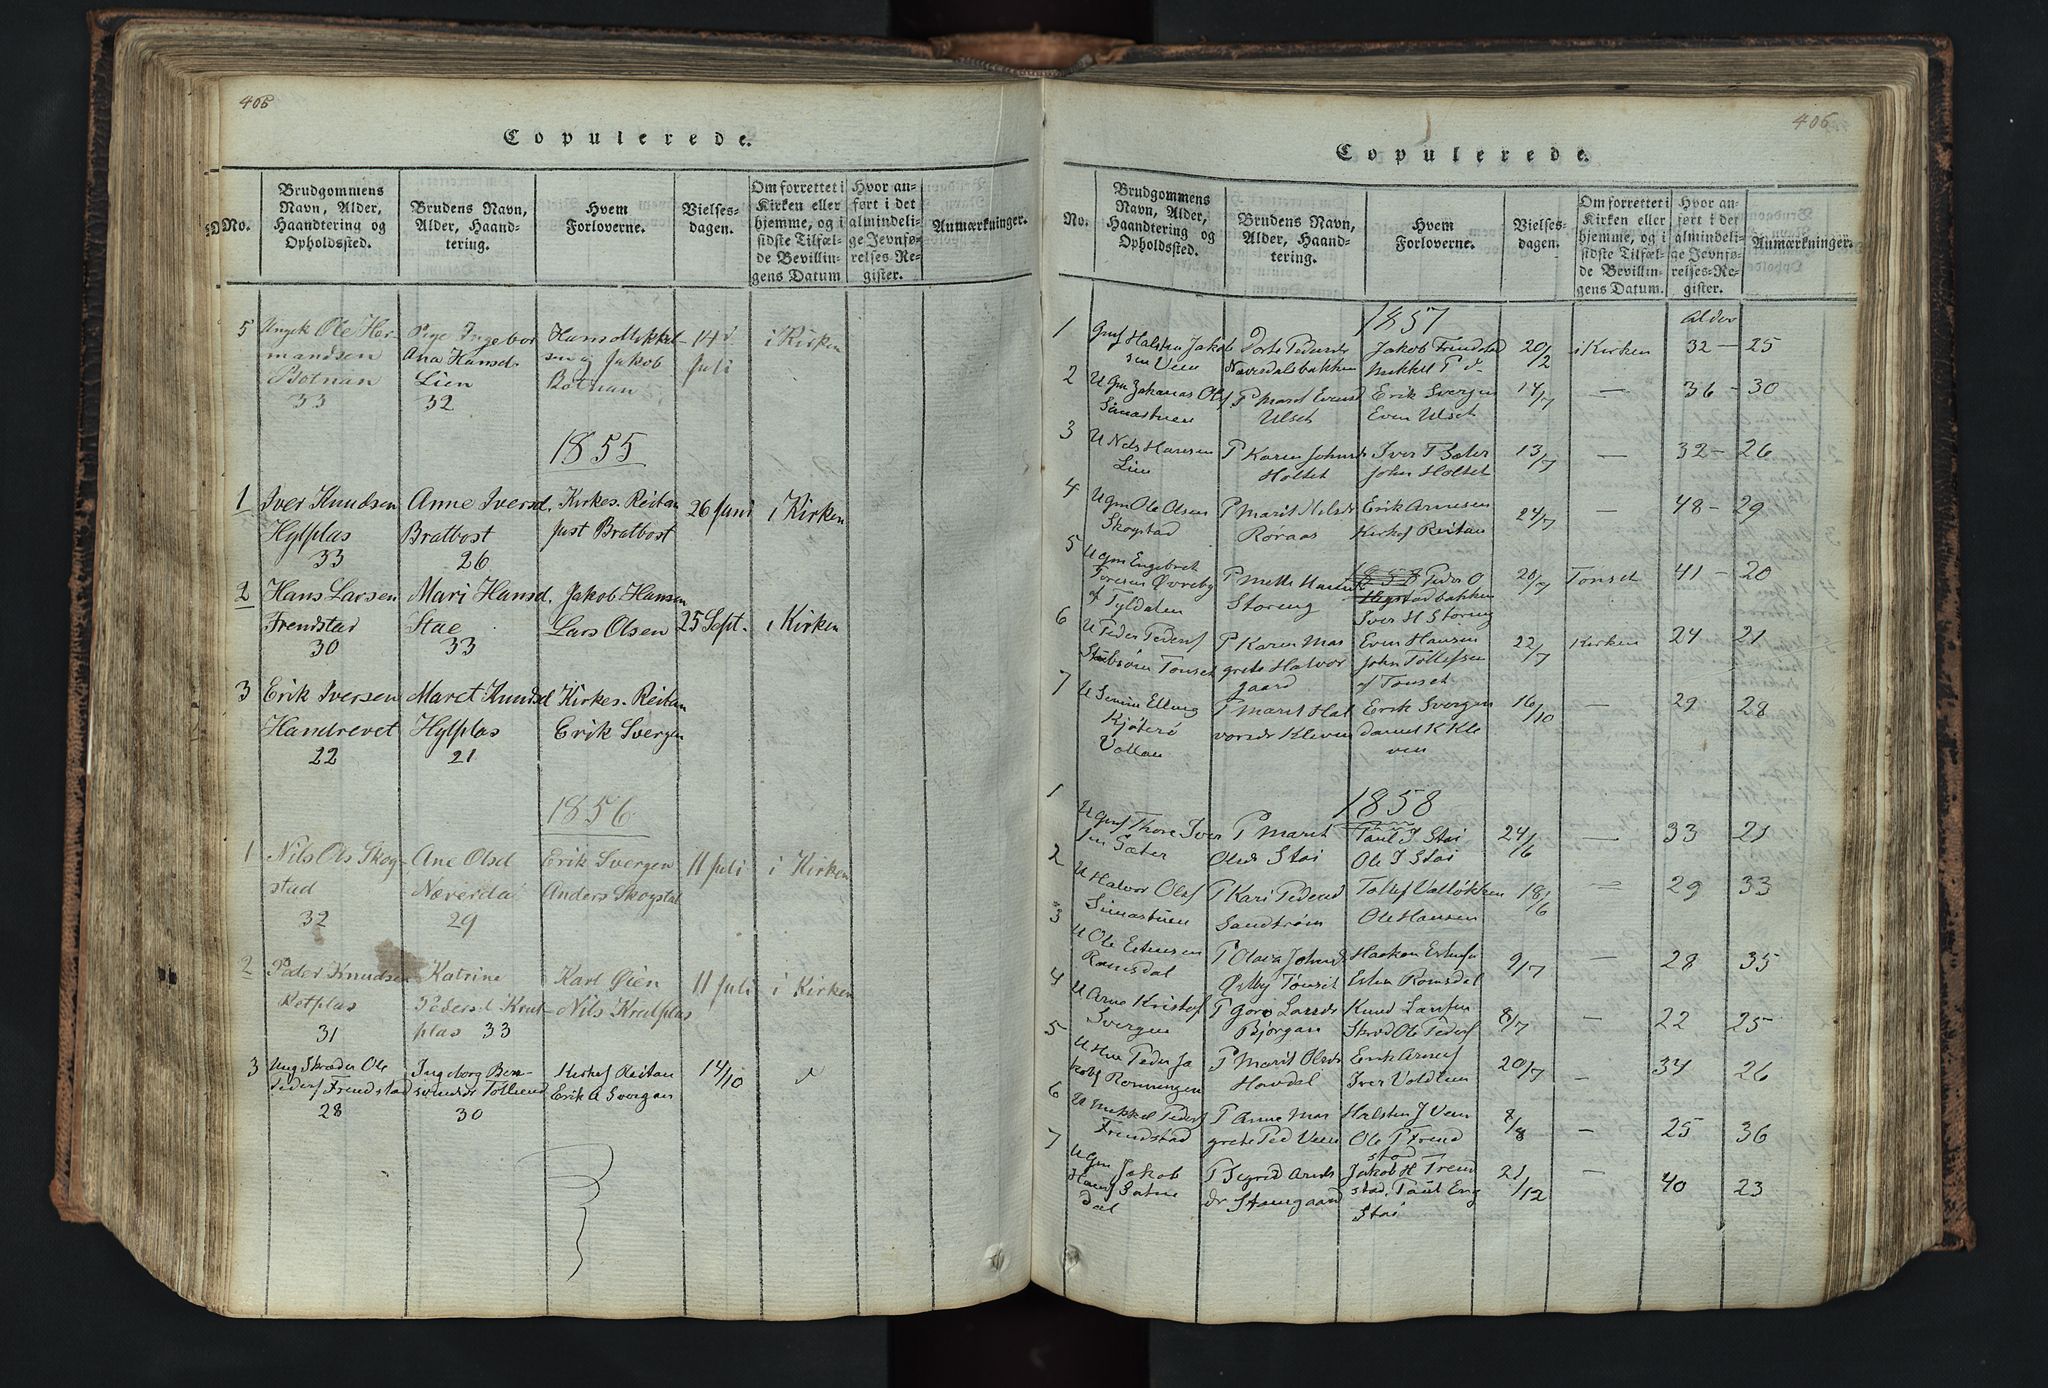 405
Copulerede.
No.
Brudgommens Navn, Alder, Haandtering og Opholdssted.
Brudens Navn, Alder, Haandtering.
Hvem Forloverne.
Vielsesdagen.
Om forrettet i Kirken eller hjemme, og i sidste Tilfælde Bevillingens Datum
Hvor anført i det almindelige Jevnførelses-Register.
Anmærkninger.
5 Ungk Ole Her- Pige Ingebor Hans Mikkel- 14d i Kirken
mandsen Ana Hansd. sen og Jakob Juli
Botnan Lien Botnan
33 32
1855
1 Iver Knudsen Anne Iversd. Kirkes. Reitan 26 Juni i Kirken
Hylplas Bratbost Just Bratbost
33 26
2 Hans Larsen Mari Hansd. Jakob Hansen 25 Sept. i Kirken
Frendstad Stae Lars Olsen
30 33
3 Erik Iversen Maret Knudsd Kirkes. Reitan
Handrevet Hylplas Erik Svergen
22 21
1856
1 Nils Ols Skog- Ane Olsd Erik Svergen 11 Juli i Kirken
stad Næverdal Anders Skogstad
32 29
2 Peder Knudsen Katrine Karl Øien 11 Juli i Kirken
Retplas Pedersd Krat- Nils Kratplas
31 plas 33
3 Ung Skræder Ole Ingeborg Ben- Kirkef Reitan 14/10
Pedersf Frendstad Erik A Svergen
28 30
406
Copulerede.
No.
Brudgommens Navn, Alder, Haandtering og Opholdssted.
Brudens Navn, Alder, Haandtering.
Hvem Forloverne.
Vielsesdagen.
Om forrettet i Kirken eller hjemme, og i sidste Tilfælde Bevillingens Datum.
Hvor anført i det almindelige Jevnførelses-Register.
Anmærkninger.
1857
Alder
1 Halsten Jakob Jakob Frendstad 20/2 i Kirken 32 — 25
sen Veen Næverdalsbakken Mikkel P d.
2 U Gm Johannes Olsf P Marit Evensd Erik Svergen 14/7 — 36 — 30
Simastuen Ulset Even Ulset
3 U Nils Hansen P Karen Johnsd Iver T Sæter 13/7 — 32 — 26
Lien Holtet John Holtet
4 U Gm Ole Olsen P Marit Nilsd Erik Arnesen 24/7 — 48 — 29
Skogstad Røraas Kirkef Reitan
5 U Gm Engebret P Mette Peder O 20/7 Tonset 41 — 20
Toresen Øvreby Storeng
af Tyldalen Iver H Storeng
6 U Peder Pedersf P Karen Mar Even Hansen 22/7 Kirken 24 21
Tonset grete Halvor John Tollefsen
gaard af Tonset
7 U Simen Elling P Marit Hal Erik Svergen 16/10 29 28
Kjøterø vorsds Kleven K Kle
Vollan ven
1858
1 Thore Iver P Marit Paul I Stai 24/6 — 33 21
sen Sæter Olsds Stai Ole I Stai
2 U Halvor Olsf P Kari Pedersd Tollef Valløkken 18/6 — 29 33
Simastuen Sandtrøen Ole Hansen
3 U Ole Estensen P Olava Johnsd Haaken Estensf 9/7 — 28 35
Romsdal Østby Tønset Esten Romsdal
4 U Arne Kristof P Gorø Larsds Knud Larsen 8/7 — 22 25
Svergen Bjørgan Ole Pedersf
5 Peder Ja P Marit Olsds Erik Arnesf 20/7 — 34 26
kobsf Ronningen Hovdal Iver Voldtuen
6 U Mikkel Pedersf P Anne Mar Halsten J Veen 8/8 — 25 36
Frendstad grete Ped Veen Ole P Frend
stad
7 U Gm Jakob P Sigrid Jakob H Frend 21/12 — 40 23
Hansf Stamgaard stad, Paul Eng
dal Stai